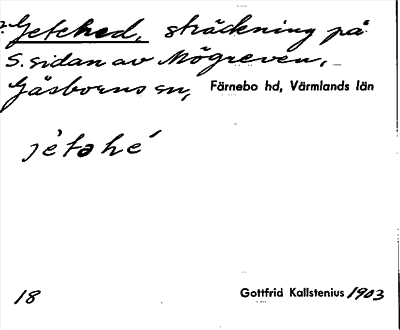 Jetehed, sträckning på
S. sidan av Mögreven,
Gåsborns sn, Färnebo hd, Värmlands län
jètəhé
18 Gottfrid Kallstenius 1903